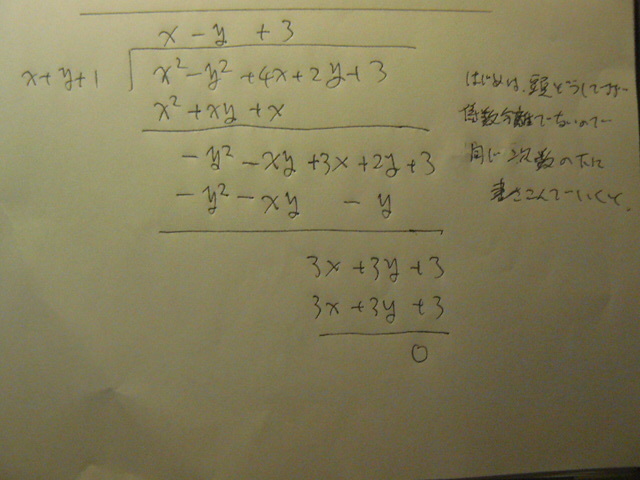 x - y + 3
x+y+1 x² - y² + 4x + 2y + 3
x² + xy + x
- y² - xy + 3x + 2y + 3
- y² - xy - y
3x + 3y + 3
3x + 3y + 3
0
はじめは、頭どうしで
係数分離でないので
同じ次数の下に
書きこんでいくと、